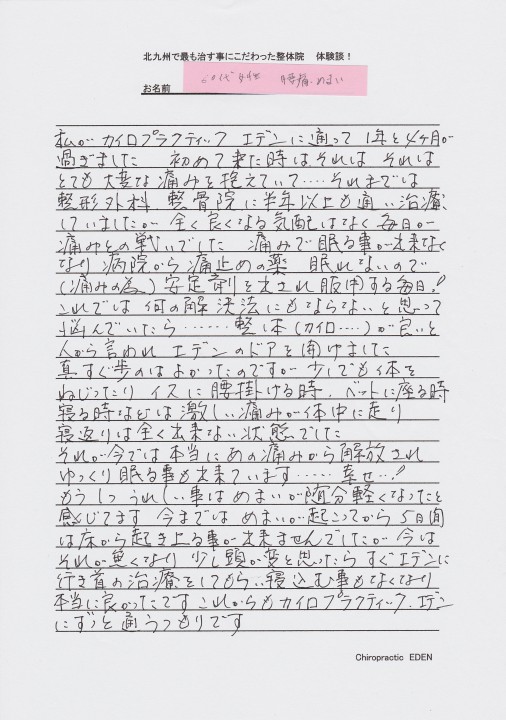 北九州で最も治す事にこだわった整体院　体験談！
お名前　60代女性　腰痛・めまい
私がカイロプラクティック エデンに通って 1年と4ヶ月が
過ぎました　初めて来た時はそれは それは
とても 大変な痛みを抱えていて‥‥それまでは
整形外科 整骨院に半年以上も通い治療、
していましたが 全く良くなる気配はなく毎日が
痛みとの戦いでした　痛みで眠る事が出来なく
なり 病院から痛止めの薬　眠れないので
(痛みの為) 安定剤を出され服用する毎日!
これでは 何の解決法にもならないと思って
悩んでいたら‥‥‥整体(カイロ‥‥)が良いと
人から言われ エデンのドアを開けました
真すぐ歩のはよかったのですが 少しでも体を
ねじったり イスに腰掛ける時、ベットに座る時
寝る時などは激しい痛みが体中に走り
寝返りは全く出来ない状態でした
それが今では本当にあの痛みから解放され
ゆっくり眠る事も出来ています‥‥‥幸せ‥!
もう1つうれしい事はめまいが随分軽くなったと
感じてます 今まではめまいが起こってから 5日間
は床から起き上る事が出来ませんでしたが 今は
それが無くなり 少し頭が変と思ったら すぐエデンに
行き首の治療をしてもらい寝込む事もなくなり
本当に良かったです これからもカイロプラクティック、エデン
にずっと通うつもりです
Chiropractic EDEN